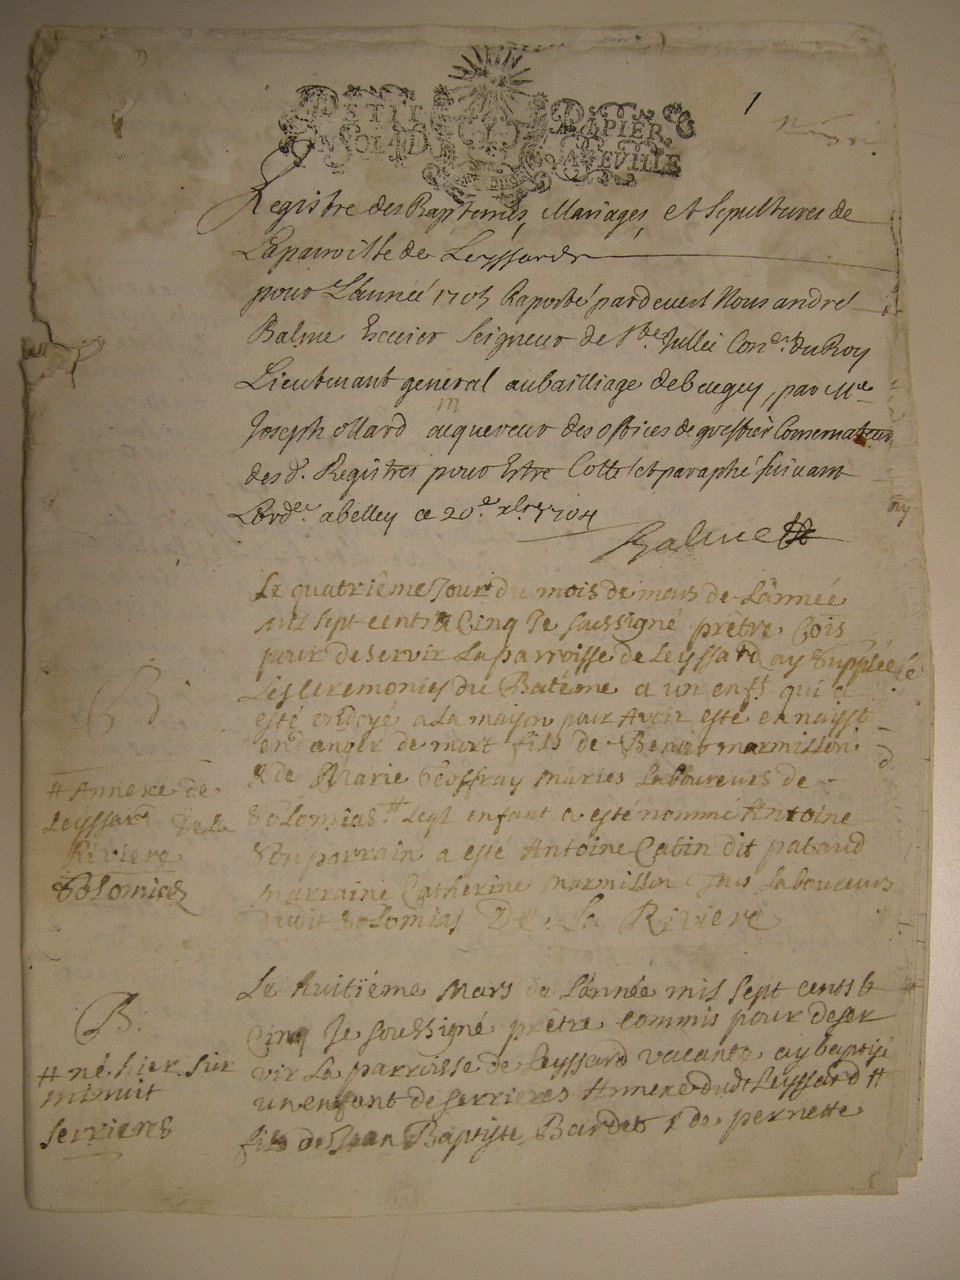 1
PETIT PAPIER
Registre des Baptemes, Mariages, et Sepultures de
Laparoisse de Leyssards
pour L'année 1705 Raporté pardevent Nous andré
Balme Escuier Seigneur de Ste Jullée Conser du Roy
Lieutenant general aubailliage debeugey, par Me
Joseph ollard acquereur des offices de greffier Conservateur
des d. Registres pour Estre Cotté et paraphé suivant
Lorde abelley ce 20e xbre 1704
Balme
Le quatriême Jour du mois de mars de L'année
mil sept-cents & Cinq Je soussigné prêtre Cõis
pour deservir Laparroisse de Leyssard ay Suppléé
Les Ceremonies du Batême a un enft qui a
esté ondoyé a La maison pour Avoir esté en naisst
en danger de mort fils de Benoit marmillon
& de Marie Geoffray Maries Laboureurs de
Solomias # Leql enfant a esté nommé Antoine
Son parrain a esté Antoine Catin dit pataud
marraine Catherine Marmillon tous laboureurs
dudit Solomias De La Riviere
B
# Annexe de
Leyssard De La
Riviere
Solomias
Le huitiéme Mars de L'année mil sept cents &
Cinq Je soussigné prêtre Commis pour deser
vir La parroisse de Leyssard vacante ay baptisé
un enfant de serrieres Annexe dudt Leyssard #
fils de Jean Baptiste Bardet & de pernette
B.
# né hier sur
minuit
serrieres